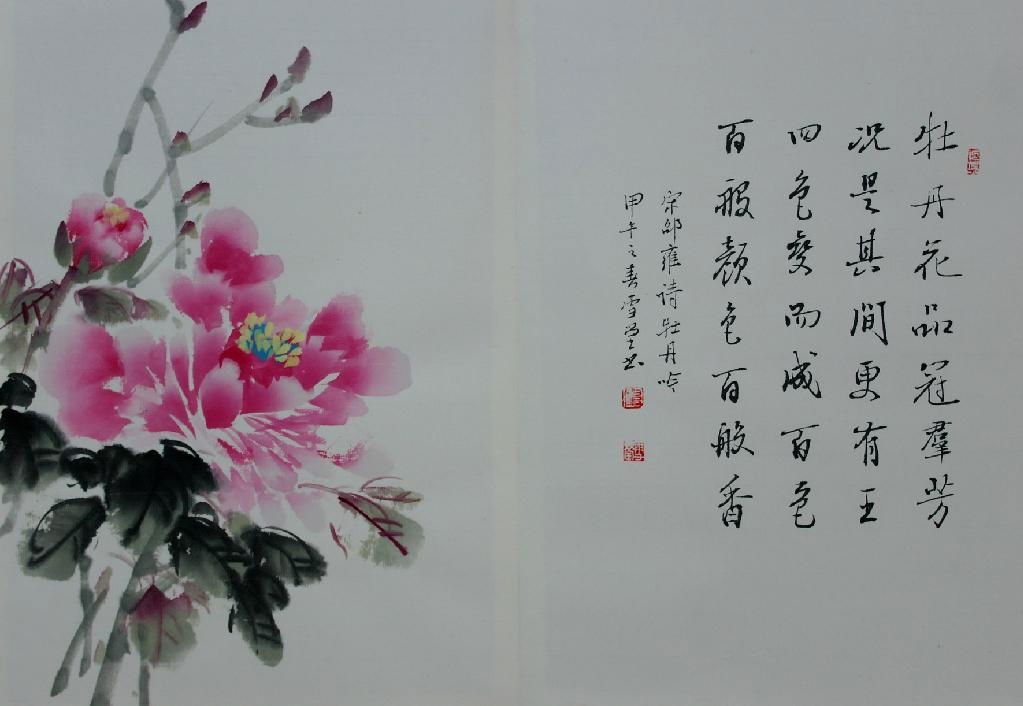 牡丹花品冠羣芳
况是其间更有王
四色变而成百色
百般颜色百般香
宋邵雍诗牡丹吟
甲午之春雪堂书